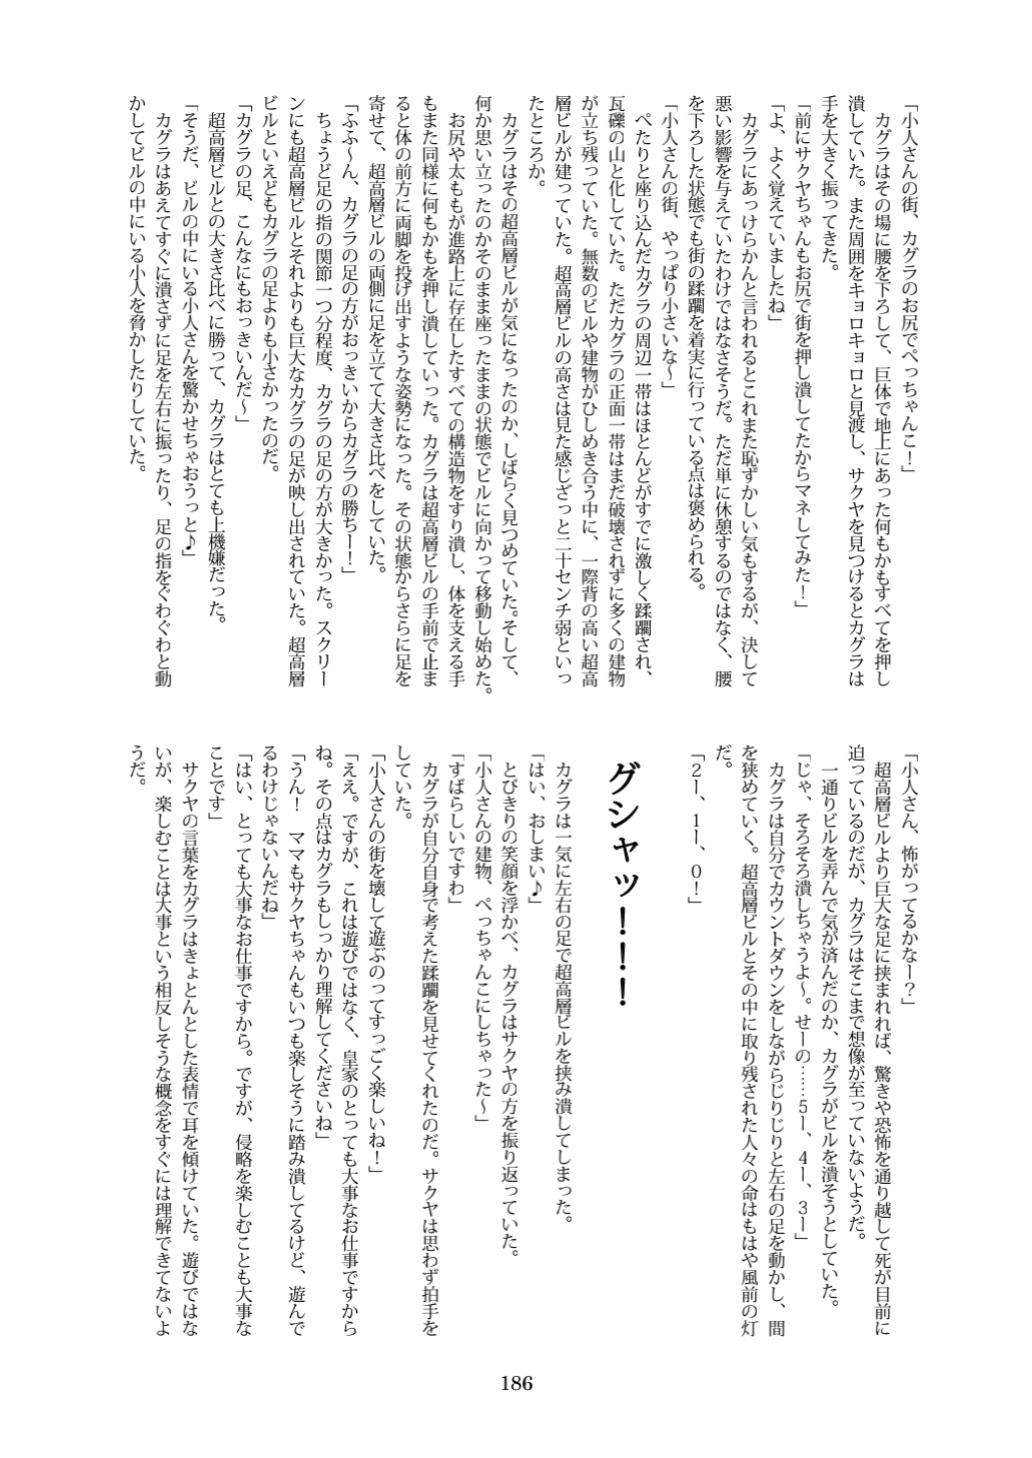 「小人さんの街、カグラのお尻でぺっちゃんこ！」
　カグラはその場に腰を下ろして、巨体で地上にあった何もかもすべてを押し
潰していた。また周囲をキョロキョロと見渡し、サクヤを見つけるとカグラは
手を大きく振ってきた。
「前にサクヤちゃんもお尻で街を押し潰してたからマネしてみた！」
「よ、よく覚えていましたね」
　カグラにあっけらかんと言われるとこれまた恥ずかしい気もするが、決して
悪い影響を与えていたわけではなさそうだ。ただ単に休憩するのではなく、腰
を下ろした状態でも街の蹂躙を着実に行っている点は褒められる。
「小人さんの街、やっぱり小さいな～」
　ぺたりと座り込んだカグラの周辺一帯はほとんどがすでに激しく蹂躙され、
瓦礫の山と化していた。ただカグラの正面一帯はまだ破壊されずに多くの建物
が立ち残っていた。無数のビルや建物がひしめき合う中に、一際背の高い超高
層ビルが建っていた。超高層ビルの高さは見た感じざっと二十センチ弱といっ
たところか。
　カグラはその超高層ビルが気になったのか、しばらく見つめていた。そして、
何か思い立ったのかそのまま座ったままの状態でビルに向かって移動し始めた。
　お尻や太ももが進路上に存在したすべての構造物をすり潰し、体を支える手
もまた同様に何もかもを押し潰していった。カグラは超高層ビルの手前で止ま
ると体の前方に両脚を投げ出すような姿勢になった。その状態からさらに足を
寄せて、超高層ビルの両側に足を立てて大きさ比べをしていた。
「ふふ～ん、カグラの足の方がおっきいからカグラの勝ちー！」
　ちょうど足の指の関節一つ分程度、カグラの足の方が大きかった。スクリー
ンにも超高層ビルとそれよりも巨大なカグラの足が映し出されていた。超高層
ビルといえどもカグラの足よりも小さかったのだ。
「カグラの足、こんなにもおっきいんだ～」
　超高層ビルとの大きさ比べに勝って、カグラはとても上機嫌だった。
「そうだ、ビルの中にいる小人さんを驚かせちゃおうっと♪」
　カグラはあえてすぐに潰さずに足を左右に振ったり、足の指をぐわぐわと動
かしてビルの中にいる小人を脅かしたりしていた。
「小人さん、怖がってるかなー？」
　超高層ビルより巨大な足に挟まれれば、驚きや恐怖を通り越して死が目前に
迫っているのだが、カグラはそこまで想像が至っていないようだ。
　一通りビルを弄んで気が済んだのか、カグラがビルを潰そうとしていた。
「じゃ、そろそろ潰しちゃうよ～。せーの……5ー、4ー、3ー」
　カグラは自分でカウントダウンをしながらじりじりと左右の足を動かし、間
を狭めていく。超高層ビルとその中に取り残された人々の命はもはや風前の灯
だ。
「2ー、1ー、0！」
グシャッ！！！
　カグラは一気に左右の足で超高層ビルを挟み潰してしまった。
「はい、おしまい♪」
　とびきりの笑顔を浮かべ、カグラはサクヤの方を振り返っていた。
「小人さんの建物、ぺっちゃんこにしちゃった～」
「すばらしいですわ」
　カグラが自分自身で考えた蹂躙を見せてくれたのだ。サクヤは思わず拍手を
していた。
「小人さんの街を壊して遊ぶのってすっごく楽しいね！」
「ええ。ですが、これは遊びではなく、皇家のとっても大事なお仕事ですから
ね。その点はカグラもしっかり理解してくださいね」
「うん！　ママもサクヤちゃんもいつも楽しそうに踏み潰してるけど、遊んで
るわけじゃないんだね」
「はい、とっても大事なお仕事ですから。ですが、侵略を楽しむことも大事な
ことです」
　サクヤの言葉をカグラはきょとんとした表情で耳を傾けていた。遊びではな
いが、楽しむことは大事という相反しそうな概念をすぐには理解できてないよ
うだ。
186